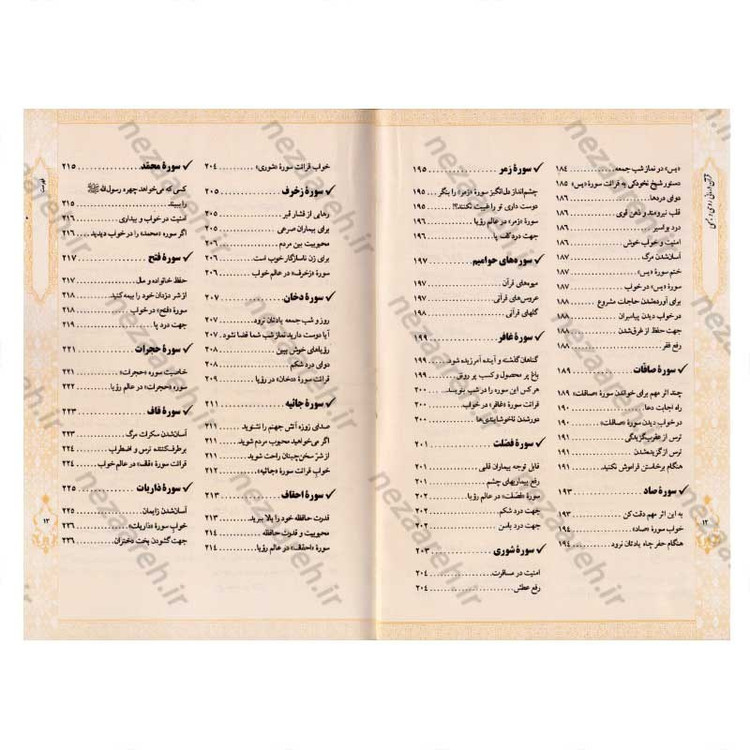 «یس» در نماز شب جمعه ۱۸۴
دستور شیخ نخودکی به قرائت سورهٔ «یس» ۱۸۵
دوای دردها ۱۸۶
قلب نیرومند و ذهن قوی ۱۸۶
درد بواسیر ۱۸۶
امنیت و خواب خوش ۱۸۶
آسان‌شدن مرگ ۱۸۷
ختم سورهٔ «یس» ۱۸۷
سورهٔ «یس» در خواب ۱۸۷
برای برآورده‌شدن حاجات مشروع ۱۸۸
در خواب دیدن پیامبران ۱۸۸
جهت حفظ از غرق‌شدن ۱۸۸
رفع فقر ۱۸۸
✓ سورهٔ صافّات ۱۸۹
چند اثر مهم برای خواندن سورهٔ «صافات» ۱۸۹
راه اجابت دعا ۱۹۰
در خواب دیدن سورهٔ «صافات» ۱۹۰
ترس از عقرب‌گزیدگی ۱۹۱
ترس از گزیده‌شدن ۱۹۱
هنگام برخاستن فراموش نکنید ۱۹۱
✓ سورهٔ صاد ۱۹۳
به این اثر مهم دقت کن ۱۹۳
خواب سورهٔ «صاد» ۱۹۴
هنگام حفر چاه یادتان نرود ۱۹۴
✓ سورهٔ زمر ۱۹۵
چشم‌انداز دل‌انگیز سورهٔ «زمر» را بنگر ۱۹۵
دوست داری تو را غیبت نکنند؟! ۱۹۵
سورهٔ «زمر» در عالم رؤیا ۱۹۶
جهت درد کف پا ۱۹۶
✓ سوره‌های حوامیم ۱۹۷
میوه‌های قرآن ۱۹۷
عروس‌های قرآنی ۱۹۷
گلهای قرآنی ۱۹۸
✓ سورهٔ غافر ۱۹۹
گناهان گذشته و آینده آمرزیده شود ۱۹۹
باغ پر محصول و کسب پر رونق ۱۹۹
هر کس این سوره را در شب بنویسد ۲۰۰
قرائت سورهٔ «غافر» در خواب ۲۰۰
دورشدن ناخوشایندی‌ها ۲۰۰
✓ سورهٔ فصّلت ۲۰۱
قابل توجه بیماران قلبی ۲۰۱
رفع بیماریهای چشم ۲۰۱
سورهٔ «فصّلت» در عالم رؤیا ۲۰۲
جهت درد شکم ۲۰۲
جهت درد باسن ۲۰۲
✓ سورهٔ شوری ۲۰۳
امنیت در مسافرت ۲۰۴
رفع عطش ۲۰۴
۱۲
خواب قرائت سورهٔ «شوری» ۲۰۴
✓ سورهٔ زخرف ۲۰۵
رهایی از فشار قبر ۲۰۵
برای بیماران صرعی ۲۰۵
محبوبیت بین مردم ۲۰۶
برای زن ناسازگار خوب است ۲۰۶
سورهٔ «زخرف» در عالم خواب ۲۰۶
✓ سورهٔ دخان ۲۰۷
روز و شب جمعه یادتان نرود ۲۰۷
آیا دوست دارید نماز شب شما قضا نشود؟ ۲۰۷
رؤیاهای خوش ببین ۲۰۸
دوای درد شکم ۲۰۸
قرائت سورهٔ «دخان» در رؤیا ۲۰۹
✓ سورهٔ جاثیه ۲۱۱
صدای زوزه آتش جهنم را نشنوید ۲۱۱
اگر می‌خواهید محبوب مردم شوید ۲۱۱
از شرّ سخن‌چینان راحت شوید ۲۱۱
خواب قرائت سورهٔ «جاثیه» ۲۱۲
✓ سورهٔ احقاف ۲۱۳
قدرت حافظه خود را بالا ببرید ۲۱۳
محبوبیت و قدرت حافظه ۲۱۴
سورهٔ «احقاف» در عالم رؤیا ۲۱۴
✓ سورهٔ محمّد ۲۱۵
کسی که می‌خواهد چهره رسول‌الله ﷺ
را ببیند ۲۱۵
امنیت در خواب و بیداری ۲۱۶
اگر سورهٔ «محمد» را در خواب دیدید ۲۱۶
✓ سورهٔ فتح ۲۱۷
حفظ خانواده و مال ۲۱۷
از شر دزدان خود را بیمه کنید ۲۱۸
سورهٔ «فتح» در خواب ۲۱۸
جهت درد پا ۲۱۹
✓ سورهٔ حجرات ۲۲۱
خاصیت سورهٔ «حجرات» ۲۲۱
سورهٔ «حجرات» در عالم رؤیا ۲۲۲
✓ سورهٔ قاف ۲۲۳
آسان‌شدن سکرات مرگ ۲۲۳
برطرف‌کننده ترس و اضطراب ۲۲۴
قرائت سورهٔ «قاف» در عالم خواب ۲۲۴
✓ سورهٔ ذاریات ۲۲۵
آسان‌شدن زایمان ۲۲۵
خواب سورهٔ «ذاریات» ۲۲۶
جهت گشودن بخت دختران ۲۲۶
فهرست
۱۳
nezaareh.ir